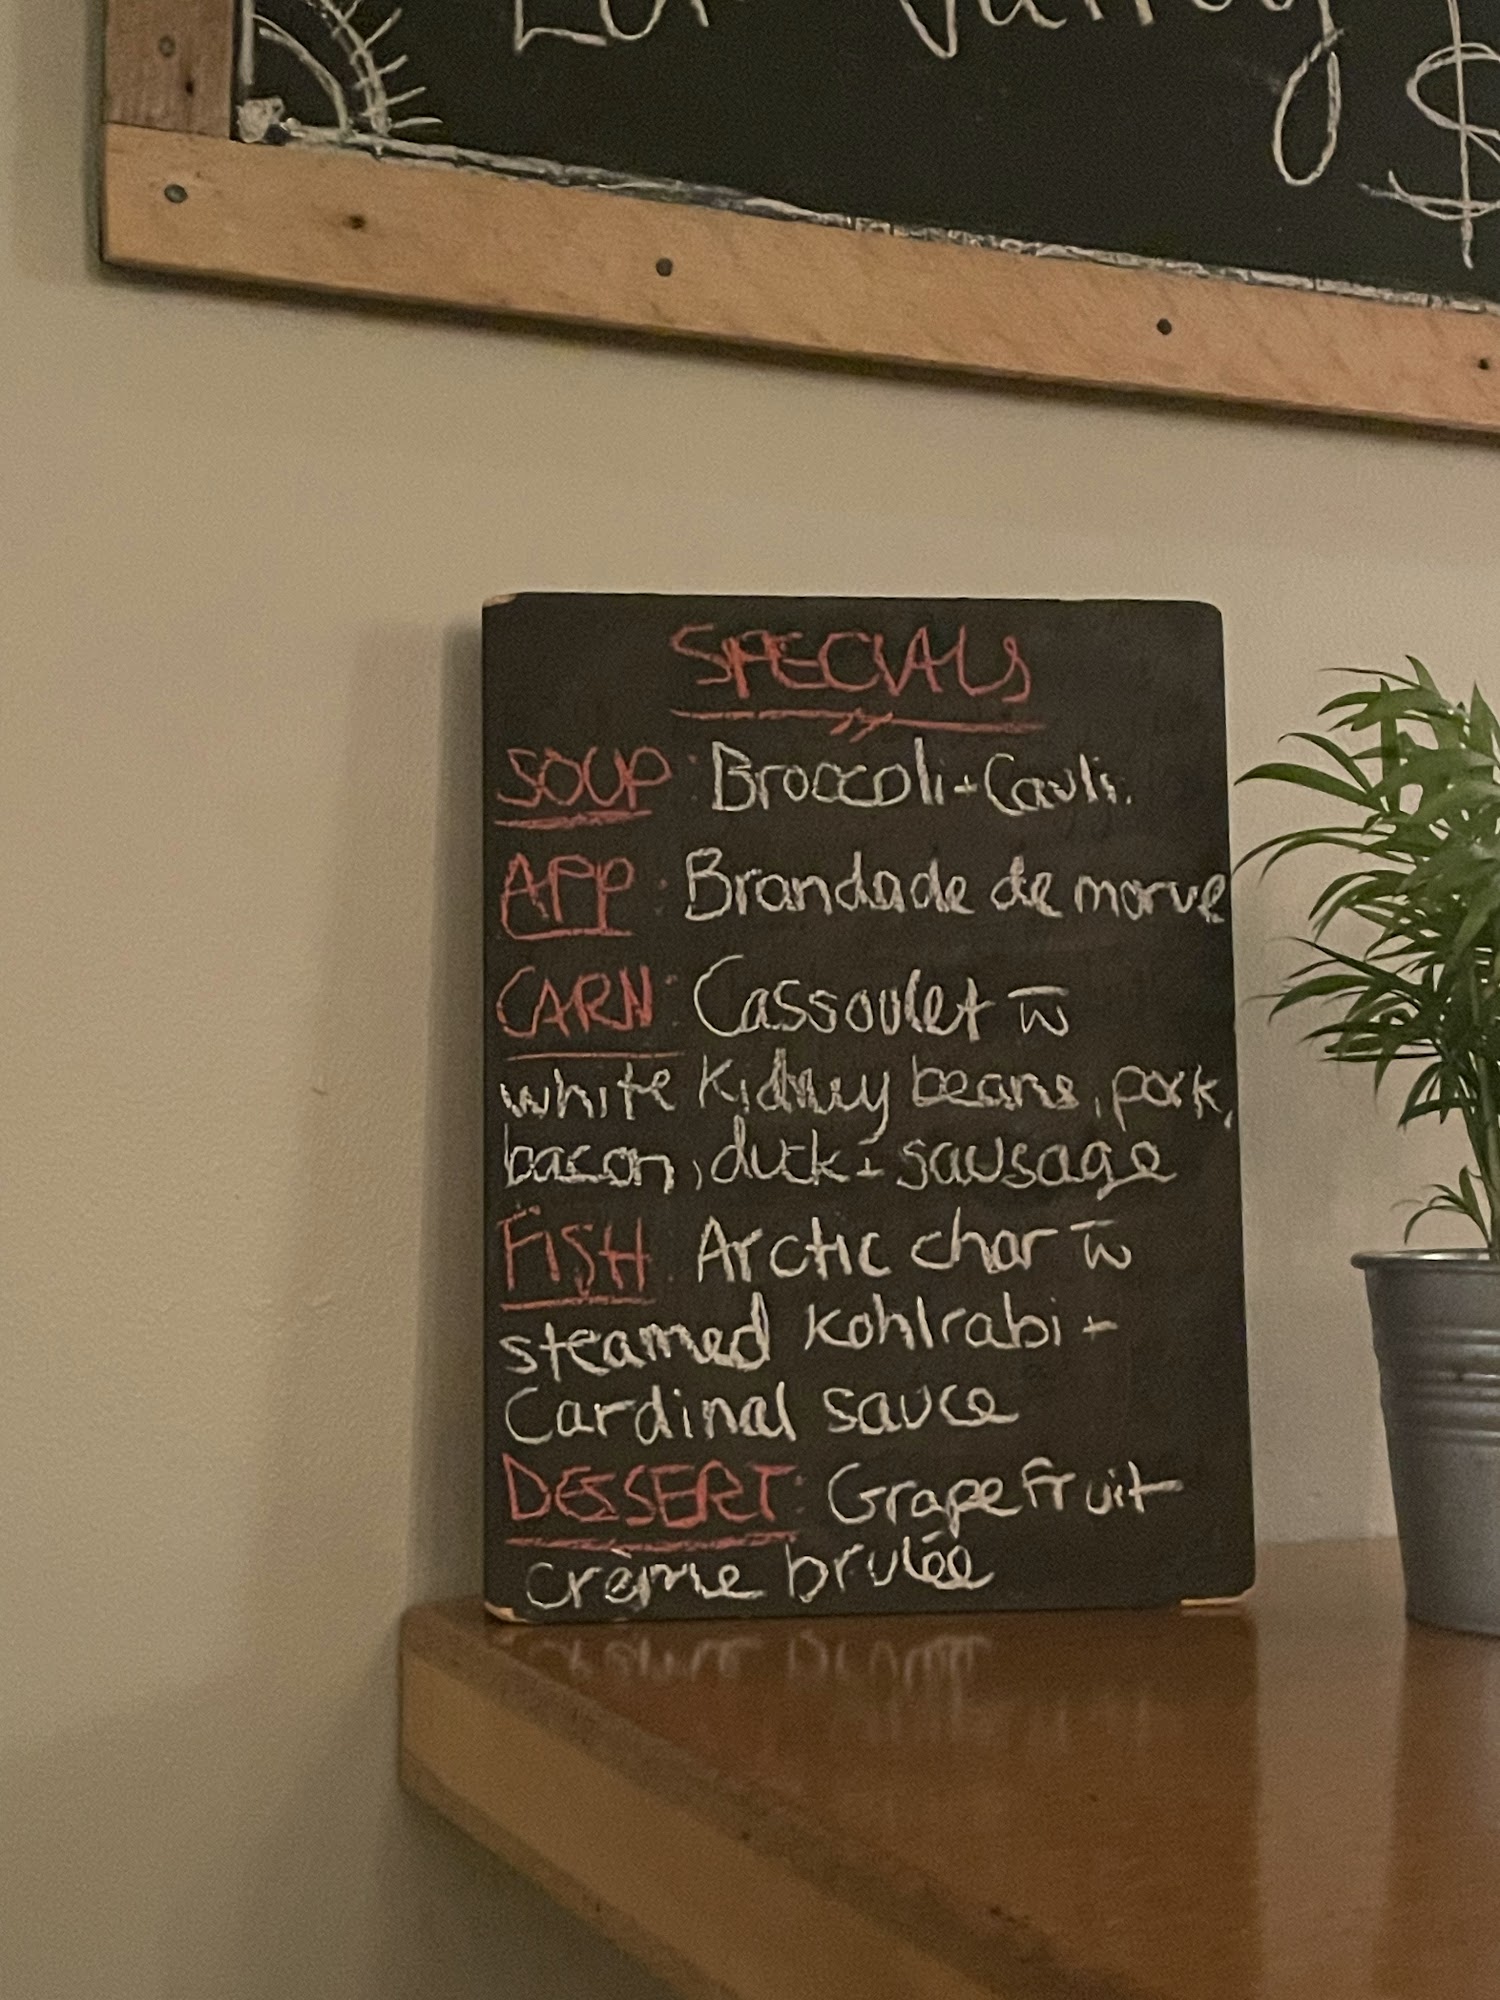 $
SPECIALS
SOUP: Broccoli + Cauli.
APP: Brandade de morue
CARN: Cassoulet w̄
white kidney beans, pork,
bacon, duck + sausage
FISH: Arctic char w̄
steamed kohlrabi +
Cardinal sauce
DESSERT: Grapefruit
crème brulée